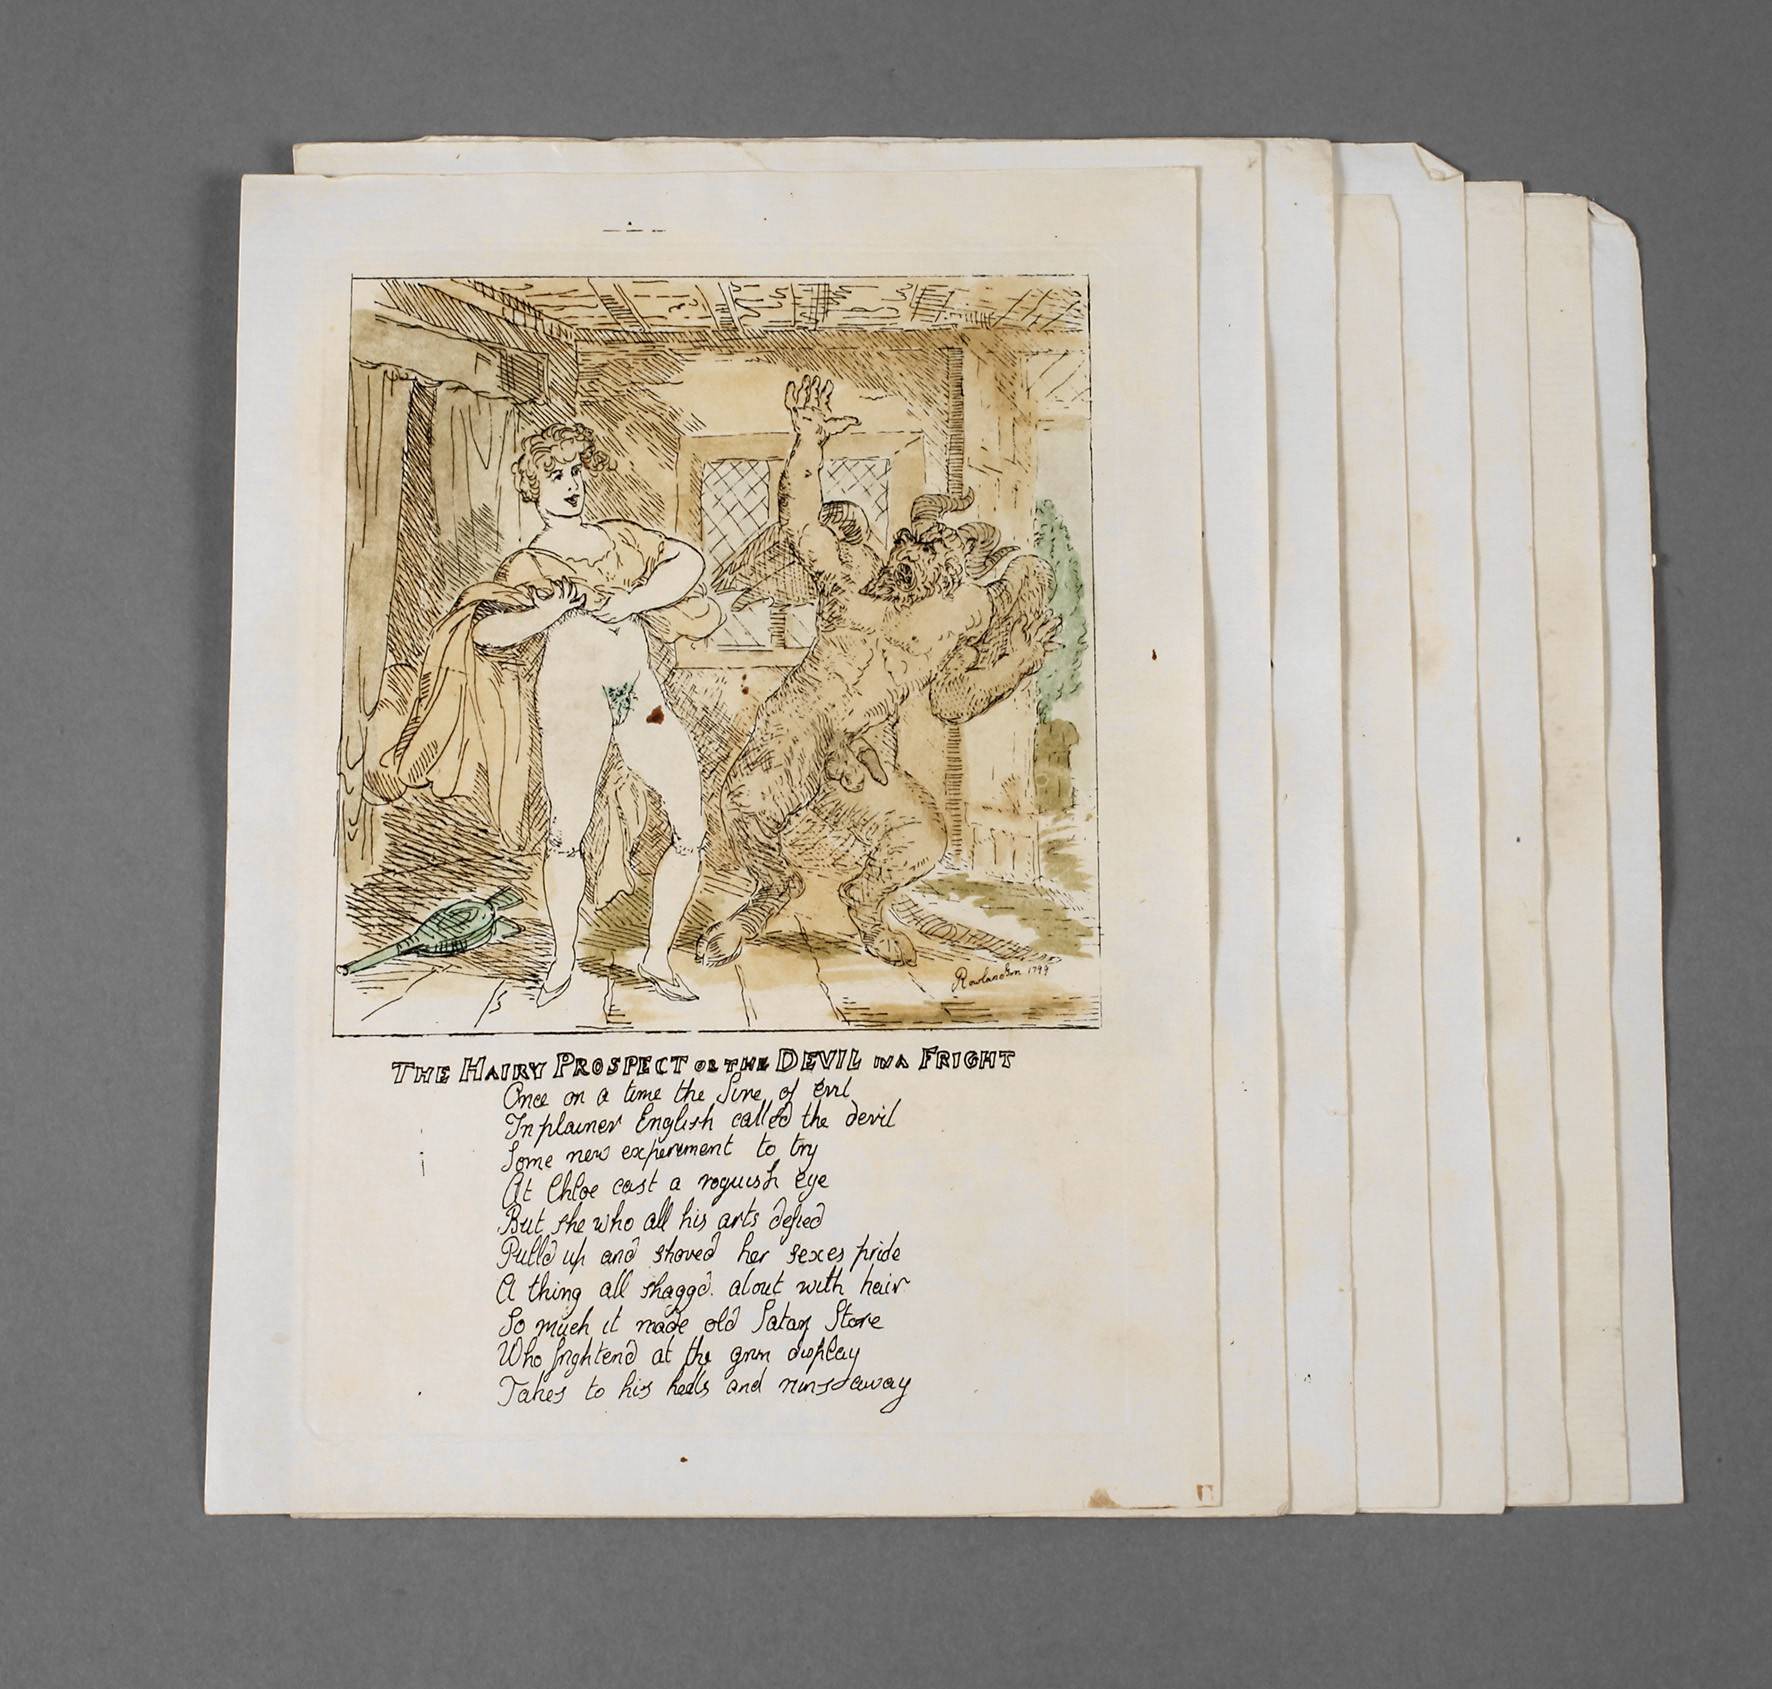 Rowlandson 1799
THE HAIRY PROSPECT OR THE DEVIL IN A FRIGHT
Once on a time the Sire of evil
In plainer English called the devil
Some new experiment to try
At Chloe cast a roguish eye
But she who all his arts defied
Pulld up and shoved her sexes pride
A thing all shaggd about with hair
So much it made old Satan Stare
Who frightend at the grim display
Takes to his heels and runs away